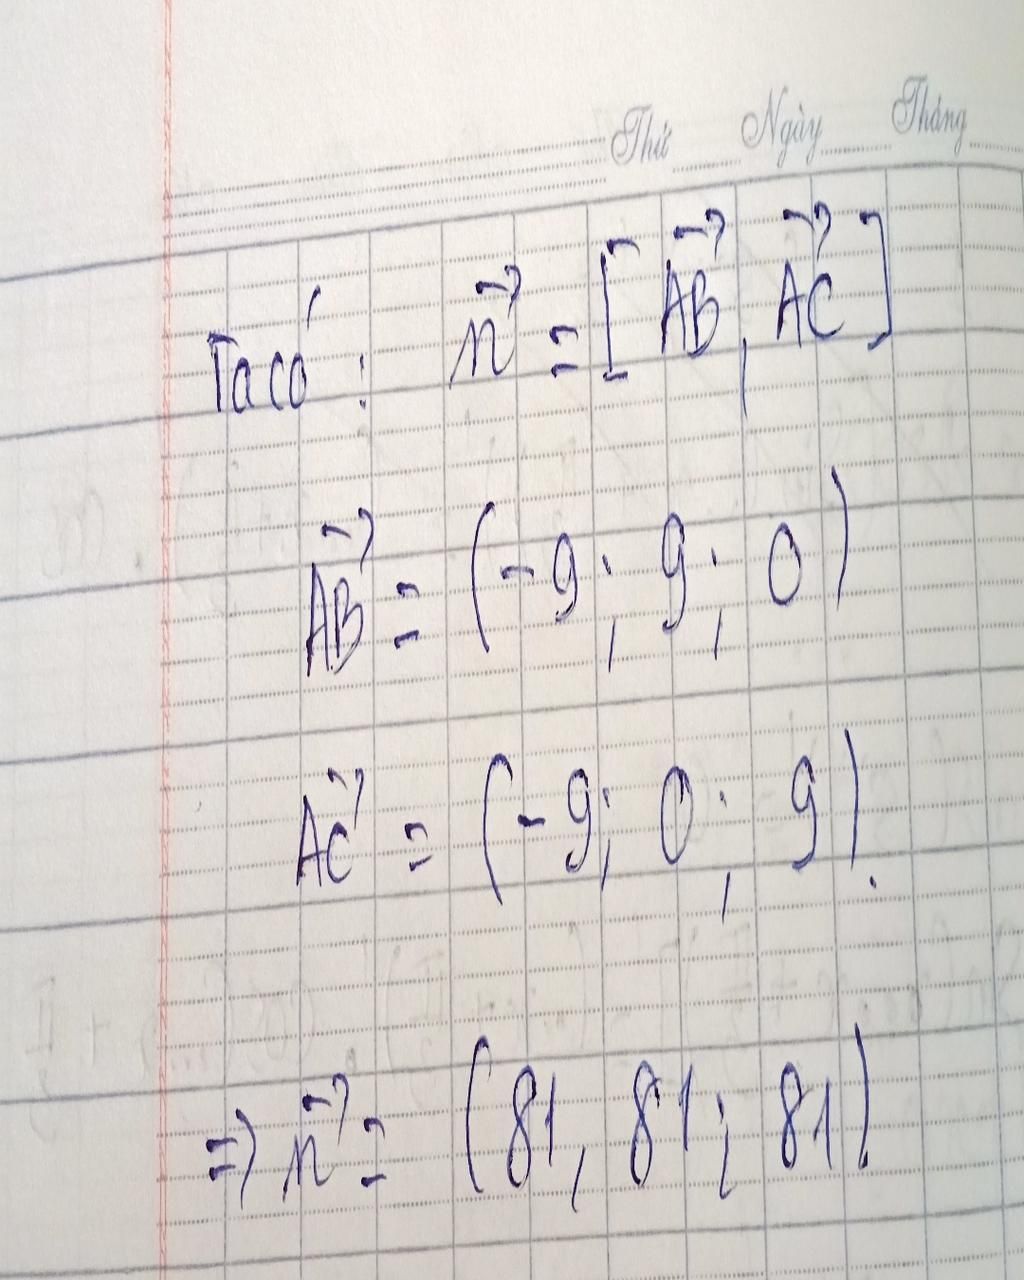 Thứ Ngày Tháng
Ta có: n⃗ = [AB⃗, AC⃗]
AB⃗ = (-9; 9; 0)
AC⃗ = (-9; 0; 9).
=> n⃗ = (81, 81; 81)